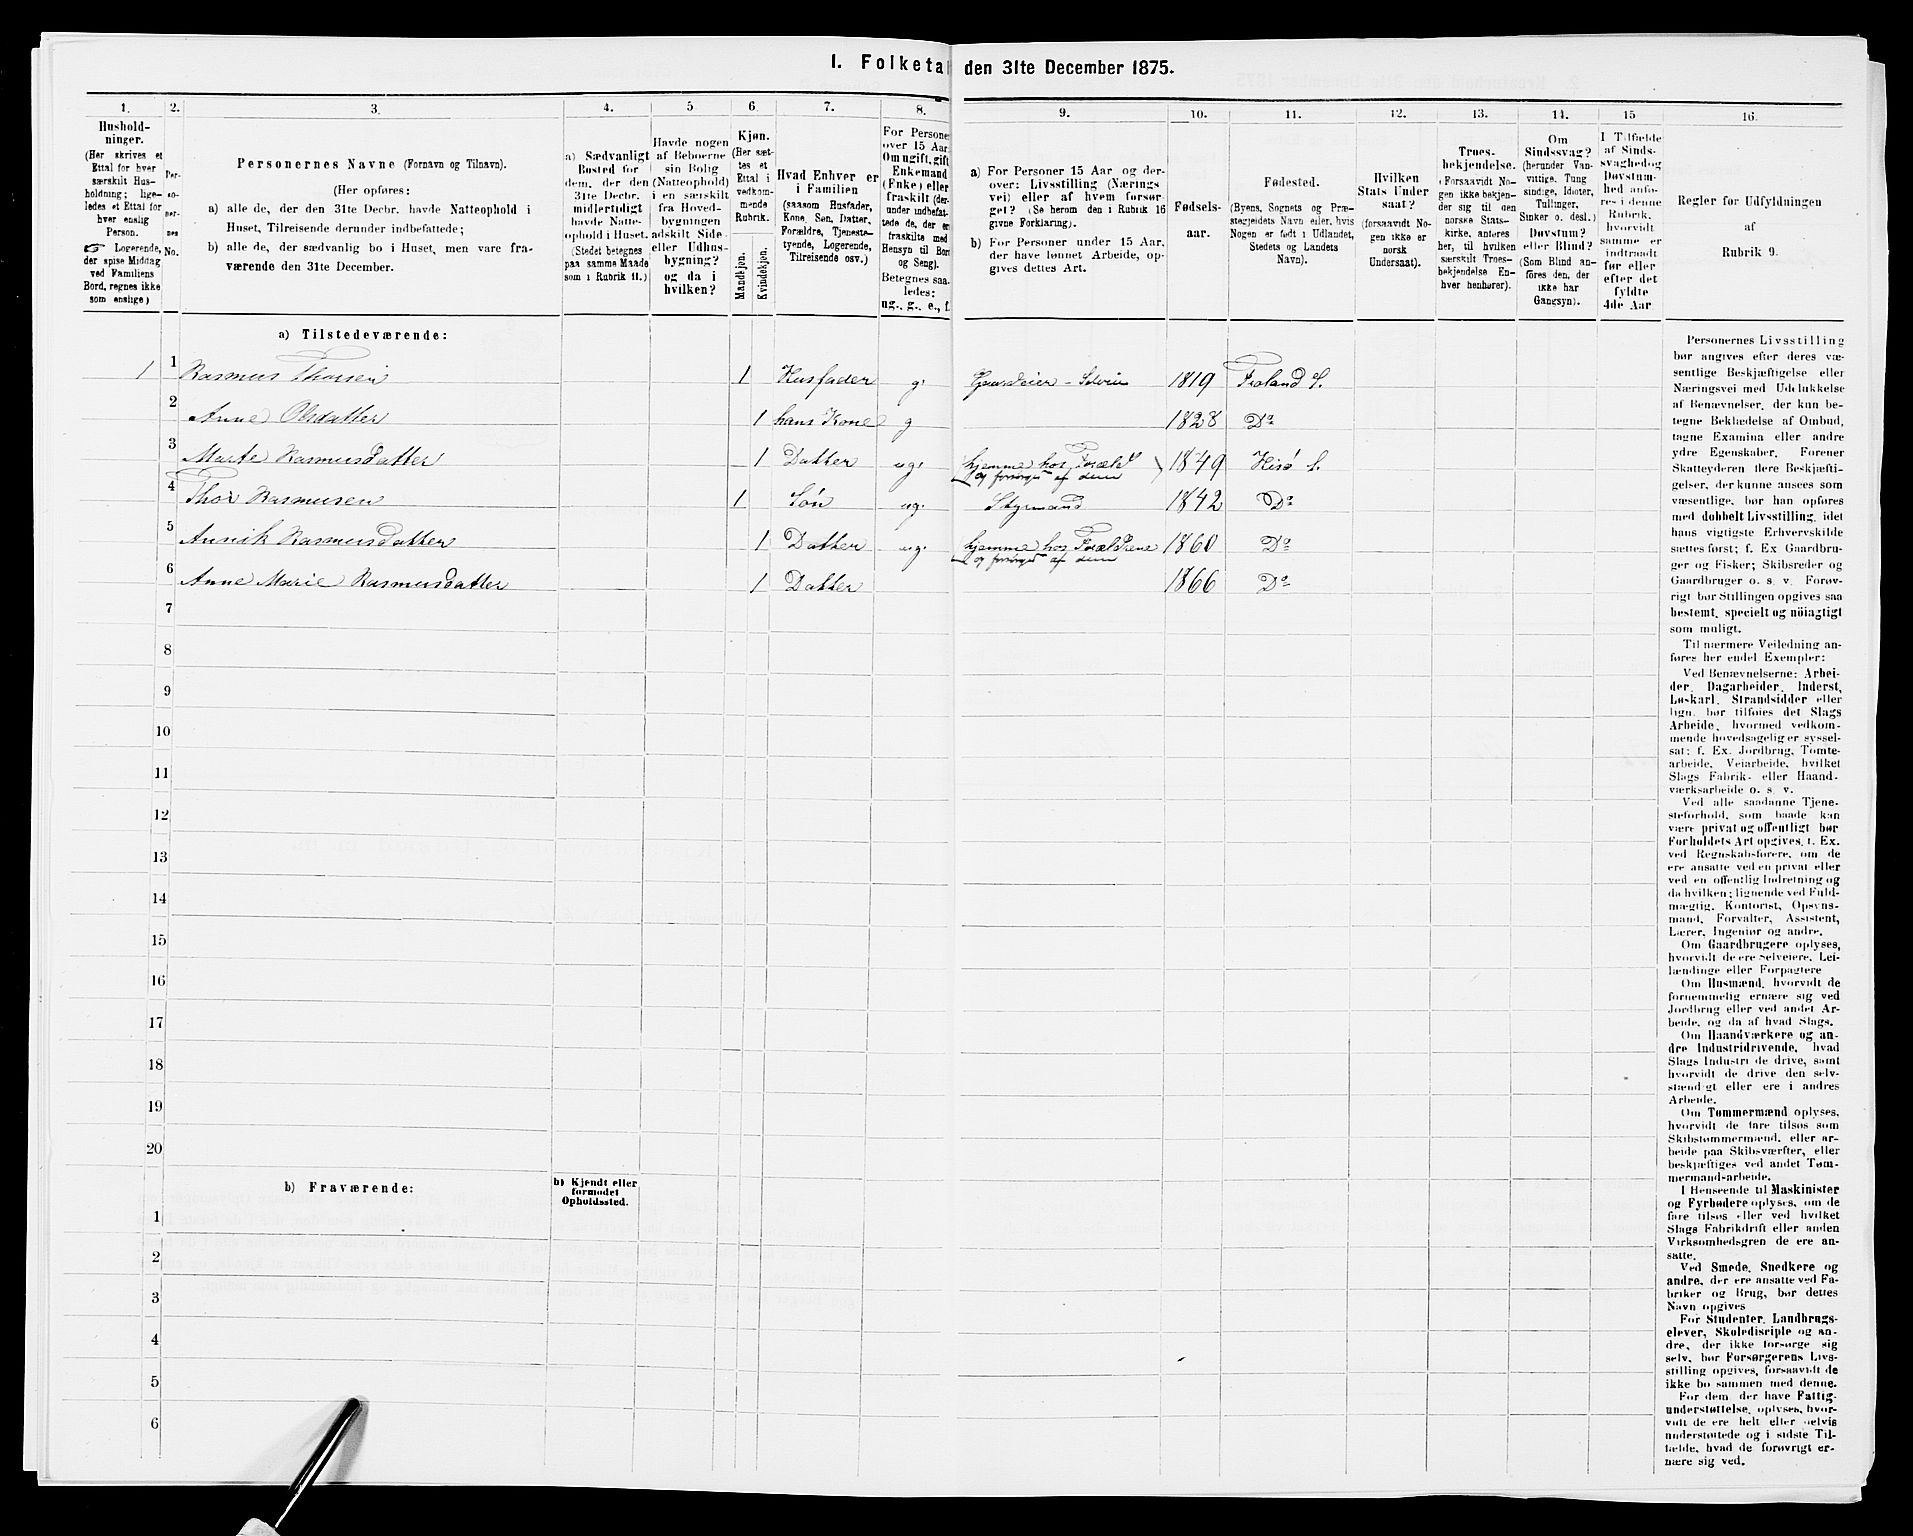 1. Folketal den 31te December 1875.
1.
2.
3.
4.
5
6.
7.
8.
9.
10.
11.
12.
13.
14.
15
16.
Hushold-
ninger.
(Her skrives et
Ettal for hver
særskilt Hus-
holdning; lige-
ledes et Ettal for
hver enslig
Person.
☞ Logerende,
der spise Middag
ved Familiens
Bord, regnes ikke
som enslige)
Per-
so-
ner-
nes
No.
Personernes Navne (Fornavn og Tilnavn).
(Her opføres:
a) alle de, der den 31te Decbr. havde Natteophold i
Huset, Tilreisende derunder indbefattede;
b) alle de, der sædvanlig bo i Huset, men vare fra-
værende den 31te December.
a) Sædvanligt
Bosted for
dem, der den
31te Decbr.
midlertidigt
havde Natte-
ophold i Huset.
(Stedet betegnes
paa samme Maade
som i Rubrik 11.)
Havde nogen
af Beboerne
sin Bolig
(Natteophold)
i en særskilt
fra Hoved-
bygningen
adskilt Side-
eller Udhus-
bygning?
og da i
hvilken?
Kjøn.
(Her sæt-
tes et
Ettal i
vedkom-
mende
Rubrik.
Mandkjøn.
Kvindekjøn.
Hvad Enhver er
i Familien
(saasom Husfader,
Kone, Søn, Datter,
Forældre, Tjeneste-
tyende, Logerende,
Tilreisende osv.)
For Persone
over 15 Aar.
Om ugift, gift
Enkemand
(Enke) eller
fraskilt (der-
under indbefat-
tede de, der er
fraskilte med
Hensyn til Bor
og Seng).
Betegnes saa-
ledes:
ug., g., e., f.
a) For Personer 15 Aar og der-
over: Livsstilling (Nærings
vei) eller af hvem forsør-
get? (Se herom den i Rubrik 16
givne Forklaring).
b) For Personer under 15 Aar,
der have lønnet Arbeide, op-
gives dettes Art.
Fødsels-
aar.
Fødested.
(Byens, Sognets og Præ-
stegjeldets Navn eller, hvis
Nogen er født i Udlandet,
Stedets og Landets
Navn).
Hvilken
Stats Under
saat?
(forsaavidt No-
gen ikke er
norsk
Undersaat).
Troes-
bekjendelse.
(Forsaavidt No-
gen ikke bekjen-
der sig til den
norske Stats-
kirke, anføres
her, til hvilken
særskilt Troes-
bekjendelse En-
hver henhører).
Om
Sindssvag?
(herunder Van-
vittige, Tung
sindige, Idioter,
Tullinger,
Sinker o. desl.)
Døvstum?
eller Blind?
(Som Blind an-
føres den, der
ikke har
Gangsyn).
I Tilfælde
af Sinds-
svaghed og
Døvstum-
hed anfø-
res i denne
Rubrik,
hvorvidt
samme er
indtraadt
før eller
efter det
fyldte
4de Aar.
Regler før Udfyldningen
af
Rubrik 9.
a) Tilstedeværende:
1 1 Rasmus Thorsen 1 Husfader g. Gaardeier - Selveier 1819 Froland S.
2 Anne Olsdatter 1 hans Kone g 1828 Do
3 Marte Rasmusdatter 1 Datter ug. hjemme hos Foræld og forsørges af dem 1849 Hisø S.
4 Thor Rasmusen 1 Søn ug. Styrmand 1842 Do
5 Annik Rasmusdatter 1 Datter ug. hjemme hos Forældrene og forsørges af dem 1860 Do
6 Anne Marie Rasmusdatter 1 Datter 1866 Do
7
8
9
10
11
12
13
14
15
16
17
18
19
20
b) Fraværende:
b) Kjendt eller
formodet
Opholdssted.
1
2
3
4
5
6
Personernes Livsstilling
bør angives efter deres væ-
sentlige Beskjæftigelse eller
Næringsvei med Udelukkelse
af Benævnelser, der kun be-
tegne Beklædelse af Ombud,
tagne Examina eller andre
ydre Egenskaber. Forener
Skatteyderen flere Beskjæfti-
gelser, der kunne ansees som
væsentlige, bør han opføres
med dobbelt Livsstilling, idet
hans vigtigste Erhvervskilde
sættes først; f. Ex Gaardbru-
ger og Fisker; Skibsreder og
Gaardbruger o. s. v. Forøv-
rigt bør Stillingen opgives saa
bestemt, specielt og nøiagtigt
som muligt.
Til nærmere Veiledning an-
føres her endel Exempler:
Ved Benævnelserne: Arbei-
der, Dagarbeider, Inderst,
Løskarl, Strandsidder eller
lign. bør tilføies det Slags
Arbeide, hvormed vedkom-
mende hovedsagelig er syssel-
sat; f. Ex. Jordbrug, Tomte-
arbeide, Veiarbeide, hvilket
Slags Fabrik- eller Haand-
værksarbeide o. s. v.
Ved alle saadanne Tjene-
steforhold, som baade kan
være privat og offentligt bør
Forholdets Art opgives, t. Ex.
ved Regnskabsførere, om de
ere ansatte ved en privat eller
ved en offentlig Indretning og
da hvilken; lignende ved Fuld-
mægtig, Kontorist, Opsyns-
mand, Forvalter, Assistent,
Lærer, Ingeniør og andre.
Om Gaardbrugere oplyses,
hvorvidt de ere Selveiere, Lei-
lændinge eller Forpagtere
Om Husmænd, hvorvidt de
fornemmelig ernære sig ved
Jordbrug eller ved andet Ar-
beide, og da af hvad Slags.
Om Haandværkere og an-
dre Industridrivende, hvad
Slags Industri de drive, samt
hvorvidt de drive den selv-
stændigt eller ere i andres
Arbeide.
Om Tømmermænd oplyses,
hvorvidt de fare tilsøs som
Skibstømmermænd, eller ar-
beide paa Skibsværfter, eller
beskjæftiges ved andet Tøm-
mermand-arbeide.
I Henseende til Maskinister
og Fyrbødere oplyses, om de
fare tilsøs eller ved hvilket
Slags Fabrikdrift eller anden
Virksomhedsgren de ere an-
satte.
Ved Smede, Snedkere og
andre, der ere ansatte ved Fa-
briker og Brug, bør dettes
Navn opgives
For Studenter, Landbrugs-
elever, Skoledisciple og an-
dre, der ikke forsørge sig
selv, bør Forsørgerens Livs-
stilling opgives, forsaavidt de
ikke bo sammen med denne.
For dem, der have Fattig-
understøttelse, oplyses, hvor-
vidt de ere helt eller delvis
understøttede og i sidste Til-
fælde, hvad de forøvrigt er-
nære sig ved.